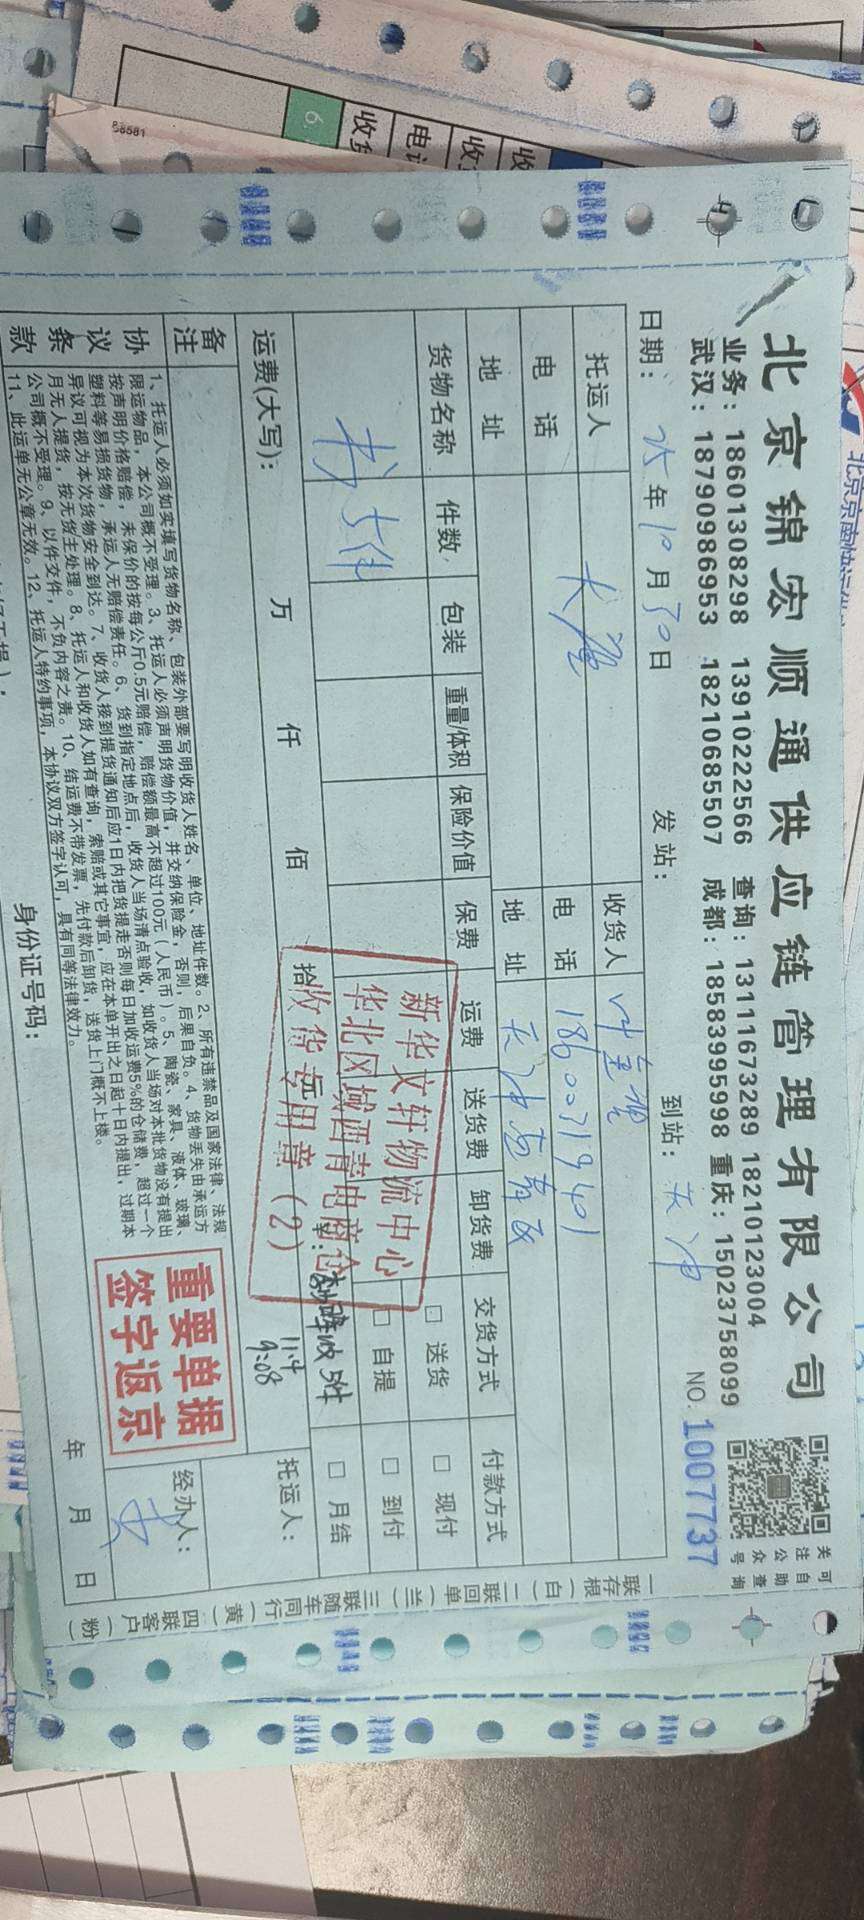 北京锦宏顺通供应链管理有限公司
业务：18601308298 13910222566 查询：13111673289 18210123004
武汉：18790986953 18210685507 成都：18583995998 重庆：15023758099
关注公众号
可自助查询
NO. 1007737
日期：25年10月30日 发站： 到站：天津
托运人 收货人
电话 电话 18600319401
地址 地址
货物名称 件数 包装 重量/体积 保险价值 保费 运费 送货费 卸货费 交货方式 付款方式
书 5件
□ 送货 □ 现付
□ 自提 □ 到付
□ 月结
运费(大写)： 万 仟 佰 拾 元
新华文轩物流中心
华北区域西青电商仓
收货专用章（2）
11.4
9:08
托运人：
备注
重要单据
签字返京
经办人：
协议条款
1、托运人必须如实填写货物名称、包装外部要写明收货人姓名、单位、地址件数。2、所有违禁品及国家法律、法规
限运物品，本公司概不受理。3、托运人必须声明货物价值，并交纳保险金，否则，后果自负。4、货物丢失由承运方
按声明价格赔偿，未保价的按每公斤0.5元赔偿，赔偿额最高不超过100元（人民币）。5、陶瓷、家具、液体、玻璃、
塑料等易损货物，承运人无赔偿责任。6、货到指定地点后，收货人当场清点验收，如收货人当场对本批货物没有提出
异议可视为本次货物安全到达。7、收货人接到提货通知后应1日内把货提走否则每日加收运费5%的仓储费，超过一个
月无人提货，按无货主处理。8、托运人和收货人如有查询，索赔或其它事宜，应在本单开出之日起十日内提出，过期本
公司概不受理。9、以件交件，不负内容之责。10、结运费不带发票，先付款后卸货，送货上门概不上楼。
11、此运单无公章无效。12、托运人特约事项，本协议双方签字认可，具有同等法律效力。
身份证号码： 年 月 日
一联存根（白）二联回单（兰）三联随车同行（黄）四联客户（粉）
58581
6.